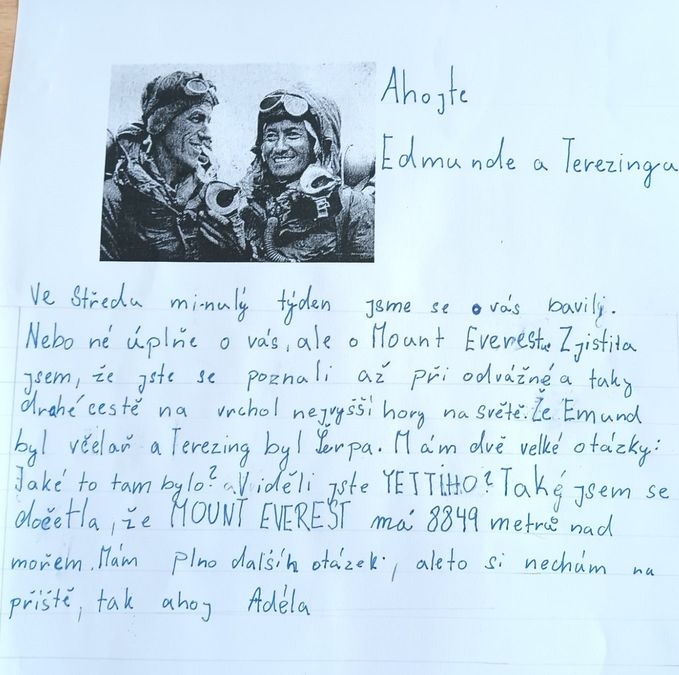 Ahojte
Edmunde a Terezingu
Ve Středu minulý týden jsme se o vás bavili.
Nebo né úplňe o vás, ale o Mount Everestu. Zjistila
jsem, že jste se poznali až při odvážné a taky
drahé cestě na vrchol nejvyšší hory na světě. Že Emund
byl včelař a Terezing byl Šerpa. Mám dvě velké otázky:
Jaké to tam bylo? a Viděli jste YETTIHO? Také jsem se
dočetla, že MOUNT EVEREST má 8849 metrů nad
mořem. Mám plno dalších otázek, ale to si nechám na
příště, tak ahoj Adéla